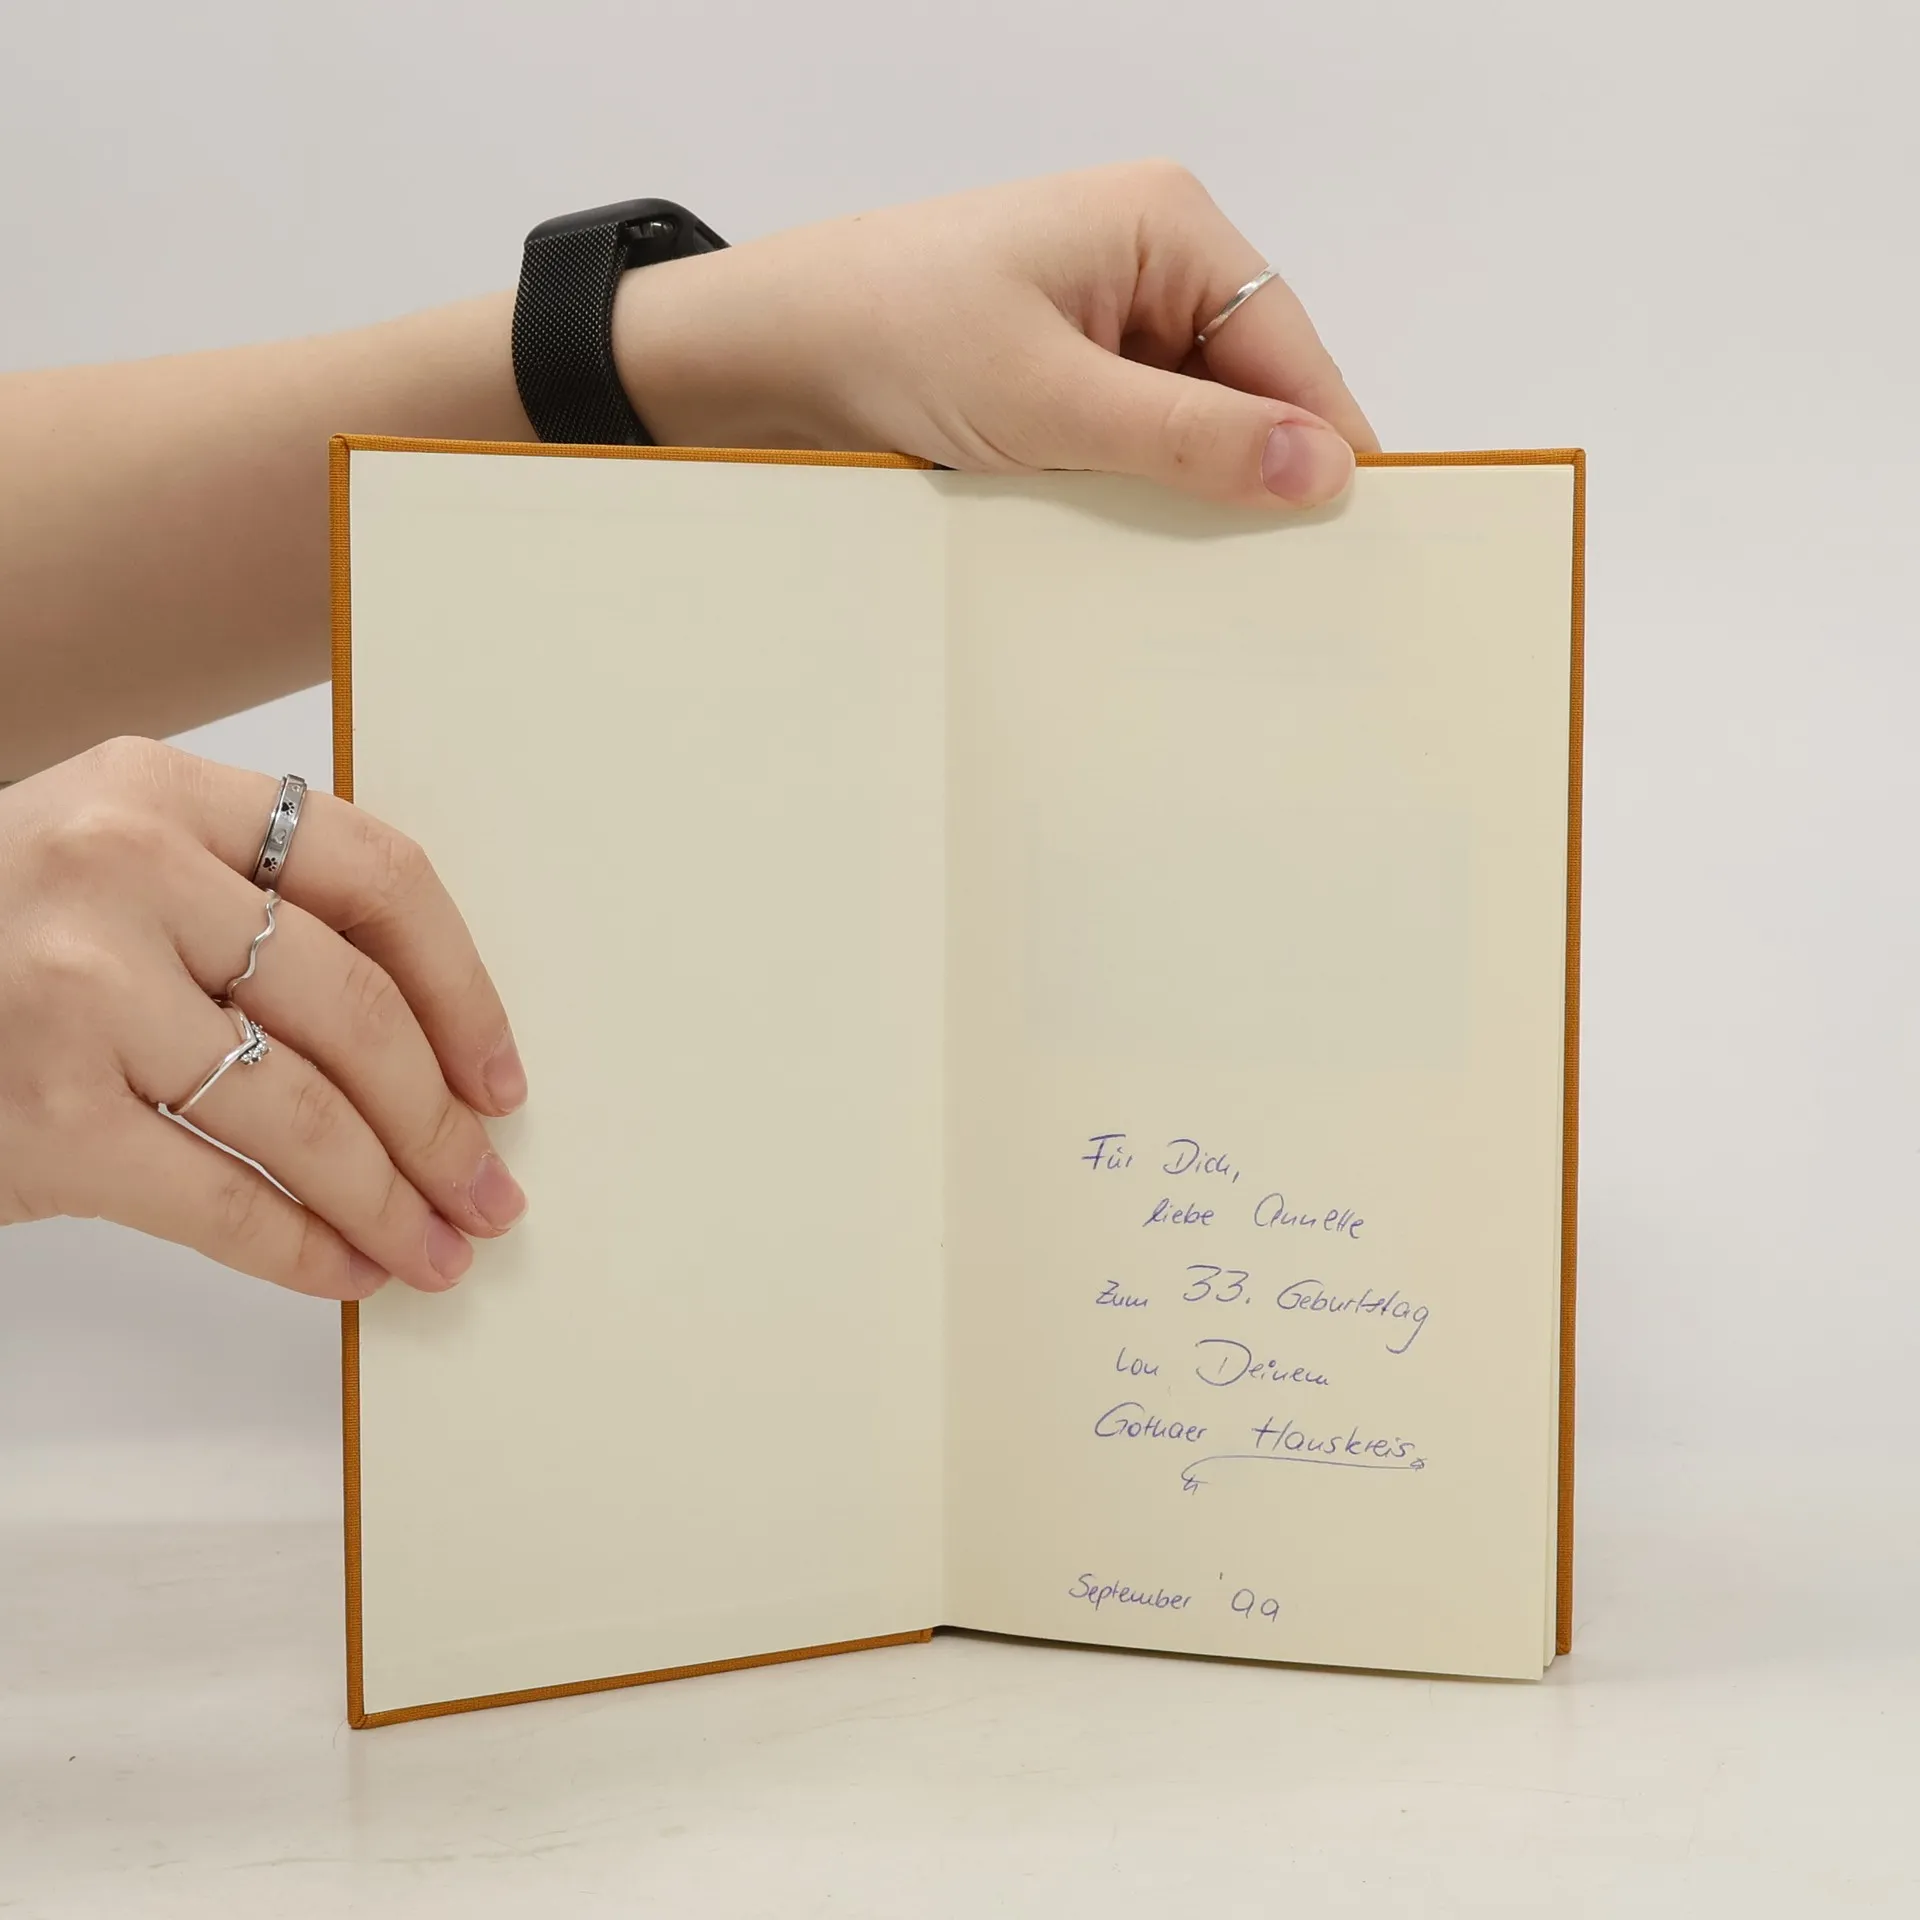 Für Dich,
liebe Annette
zum 33. Geburtstag
von Deinem
Gothaer Hauskreis.
September '99